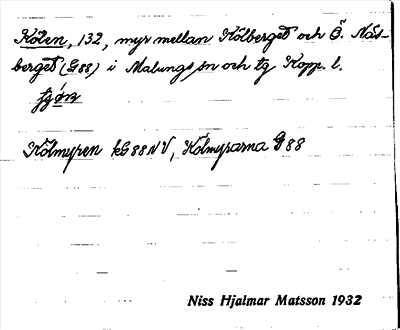 Kölen, 132, myr mellan Kölberget och Ö. Näs-
berget (G88) i Malungs sn och tg Kopp. l.
Kölmyren kG88NV, Kölmyrarna G88
Niss Hjalmar Matsson 1932